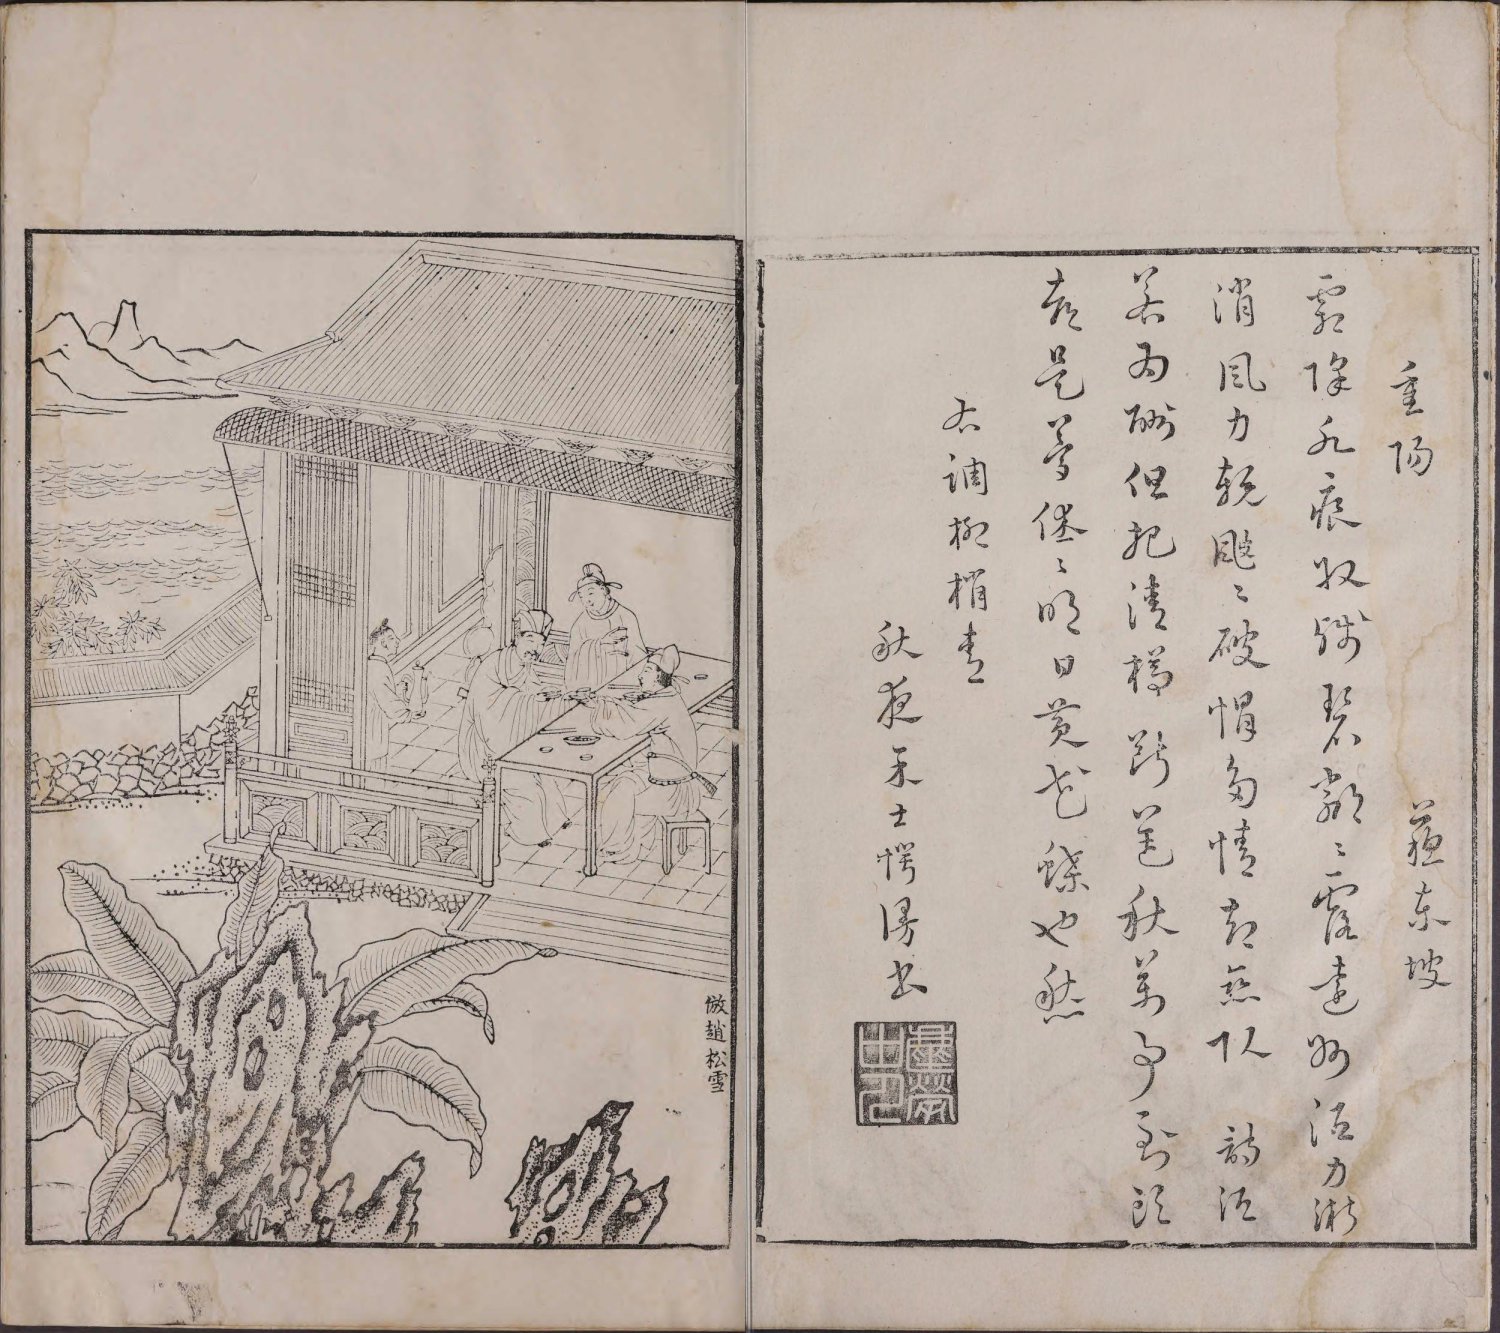 重陽
蘇東坡
霜降水痕收淺碧鱗〻露遠洲酒力漸
消風力軟颼〻破帽多情卻戀頭 詩酒
若為酬但把清樽斷送秋萬事到頭
都是夢休〻明日黃花蝶也愁
右調柳梢青
秋夜 士愕漫書
倣趙松雪